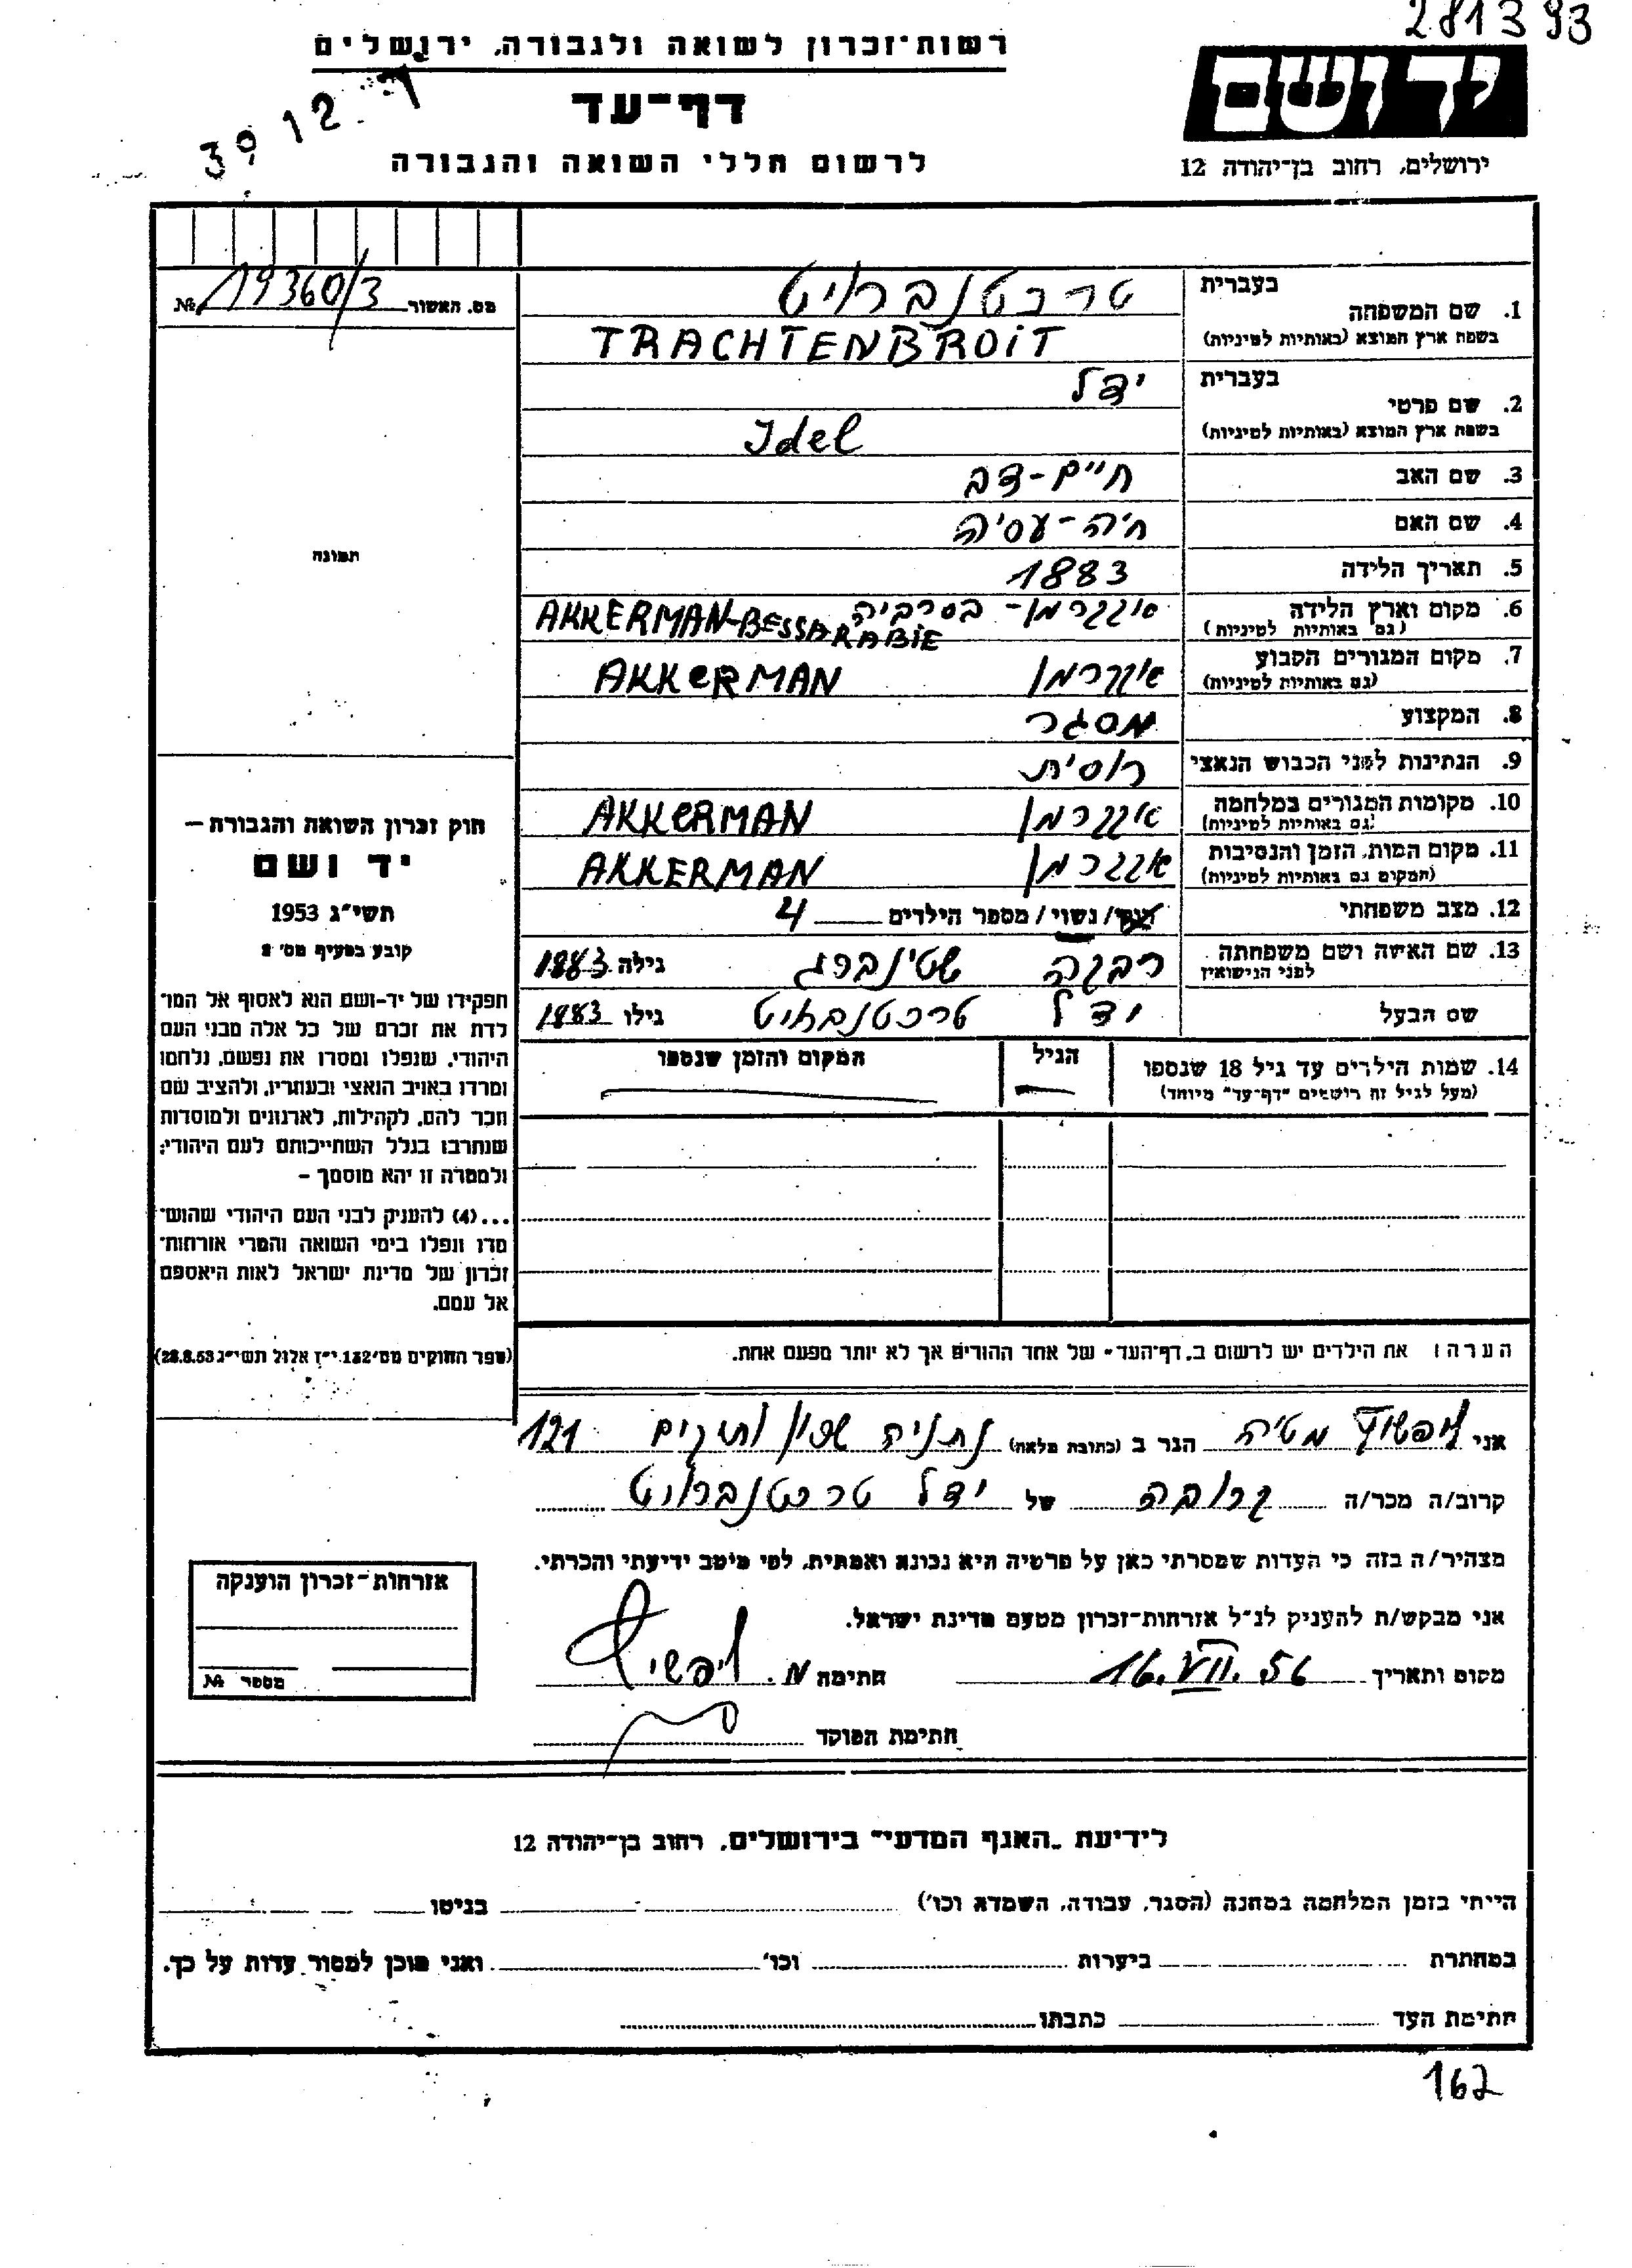 281393
רשות־זכרון לשואה ולגבורה, ירושלים
יד ושם
דף־עד
30 12
לרשום חללי השואה והגבורה
ירושלים, רחוב בן־יהודה 12
מס. האשור 19360/3 №
1. שם המשפחה
בעברית
טרכטנברויט
בשפת ארץ המוצא (באותיות לטיניות)
TRACHTENBROIT
2. שם פרטי
בעברית
ידל
בשפת ארץ המוצא (באותיות לטיניות)
Idel
3. שם האב חיים-דב
4. שם האם חיה-עסיה
תמונה
5. תאריך הלידה 1883
6. מקום וארץ הלידה
(גם באותיות לטיניות)
בסרביה AKKERMAN-BESSARABIE
7. מקום המגורים הקבוע
(גם באותיות לטיניות)
אקרמן AKKERMAN
8. המקצוע מסגר
9. הנתינות לפני הכבוש הנאצי רוסית
10. מקומות המגורים במלחמה
(גם באותיות לטיניות)
אקרמן AKKERMAN
11. מקום המות, הזמן והנסיבות
(המקום גם באותיות לטיניות)
אקרמן AKKERMAN
12. מצב משפחתי / נשוי / מספר הילדים 4
13. שם האשה ושם משפחתה
לפני הנישואין
רבקה שטינברג גילה 1883
שם הבעל ידל טרכטנברויט גילו 1883
14. שמות הילדים עד גיל 18 שנספו
(מעל לגיל זה רושמים "דף־עד" מיוחד)
הגיל
המקום והזמן שנספו
חוק זכרון השואה והגבורה —
יד ושם
תשי"ג 1953
קובע בסעיף מס' 2
תפקידו של יד-ושם הוא לאסוף אל המו־
לדת את זכרם של כל אלה מבני העם
היהודי, שנפלו ומסרו את נפשם, נלחמו
ומרדו באויב הנאצי ובעוזריו, ולהציב שם
וזכר להם, לקהילות, לארגונים ולמוסדות
שנחרבו בגלל השתייכותם לעם היהודי;
ולמטרה זו יהא מוסמך —
...(4) להעניק לבני העם היהודי שהוש־
מדו ונפלו בימי השואה והמרי אזרחות־
זכרון של מדינת ישראל לאות היאספם
אל עמם.
(ספר החוקים מס' 132. י"ז אלול תשי"ג 28.8.53)
הערה: את הילדים יש לרשום ב„דף־העד" של אחד ההורים אך לא יותר מפעם אחת.
אני ליפשיץ הגר ב (כתובת מלאה) נתניה שכון ותיקים 121
קרוב/ה מכר/ה קרובה של ידל טרכטנברויט
מצהיר/ה בזה כי העדות שמסרתי כאן על פרטיה היא נכונה ואמתית, לפי מיטב ידיעתי והכרתי.
אני מבקש/ת להעניק לנ"ל אזרחות־זכרון מטעם מדינת ישראל.
מקום ותאריך 16.VII.56 חתימה מ. ליפשיץ
חתימת הפוקד
אזרחות־זכרון הוענקה
מספר №
לידיעת „האגף המדעי" בירושלים, רחוב בן־יהודה 12
הייתי בזמן המלחמה במחנה (הסגר, עבודה, השמדה וכו') בגיטו
במחתרת ביערות וכו' ואני מוכן למסור עדות על כך.
חתימת העד כתבתו
162